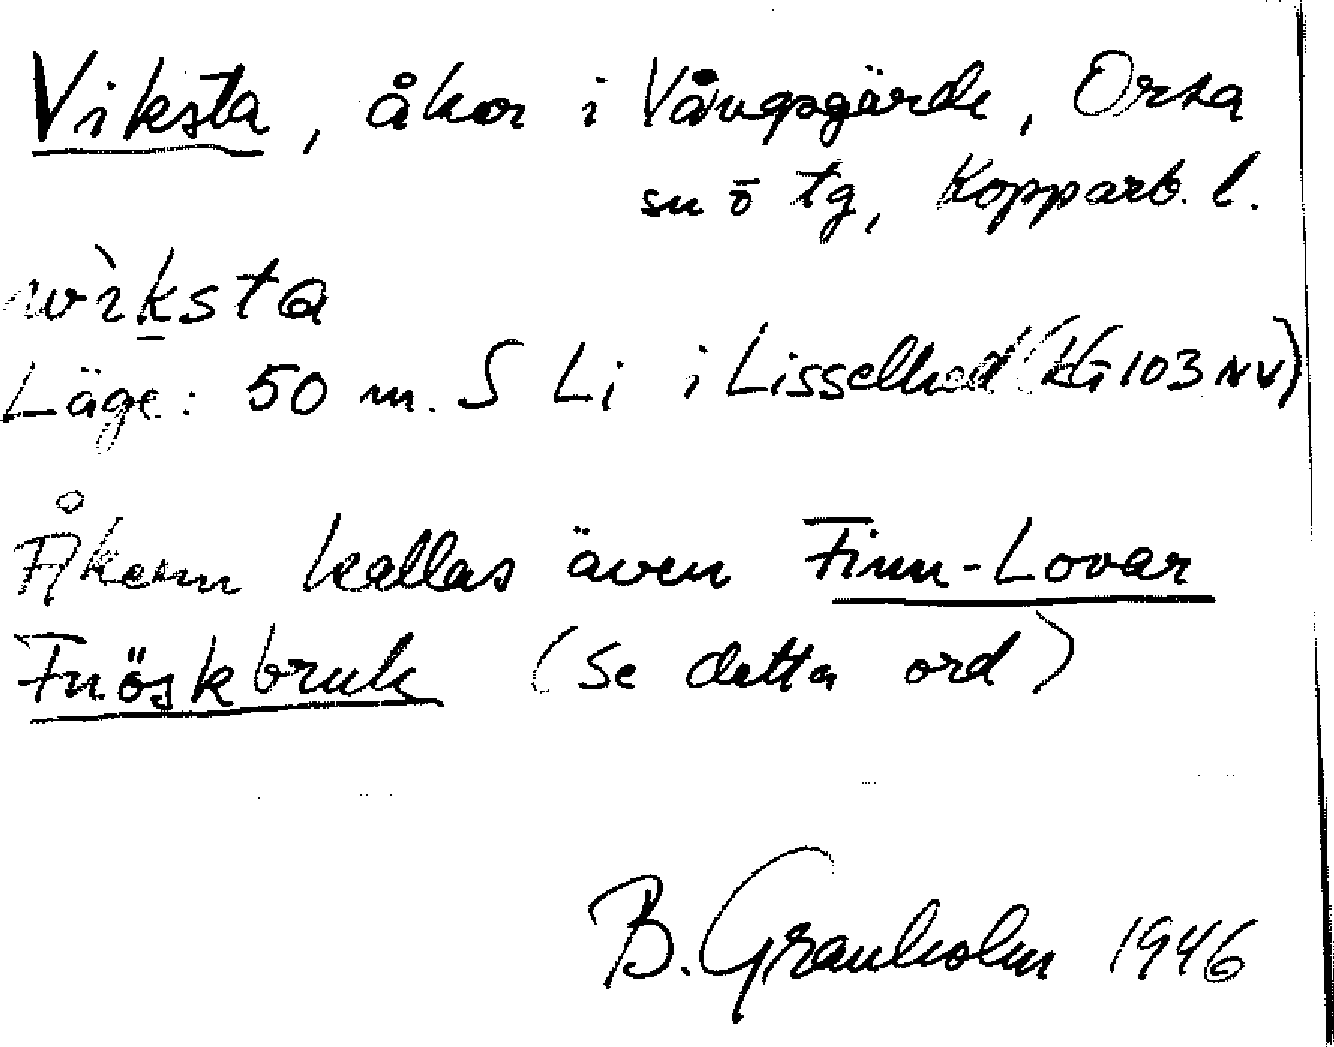 Viksta, åker i Vångsgärde, Orsa
sn ö tg, Kopparb. l.
wìksta
Läge: 50 m. S Li i Lisselhed (KG103NV)
Åkern kallas även Finn-Lovar
Fnöskbruk (se detta ord)
B. Granholm 1946